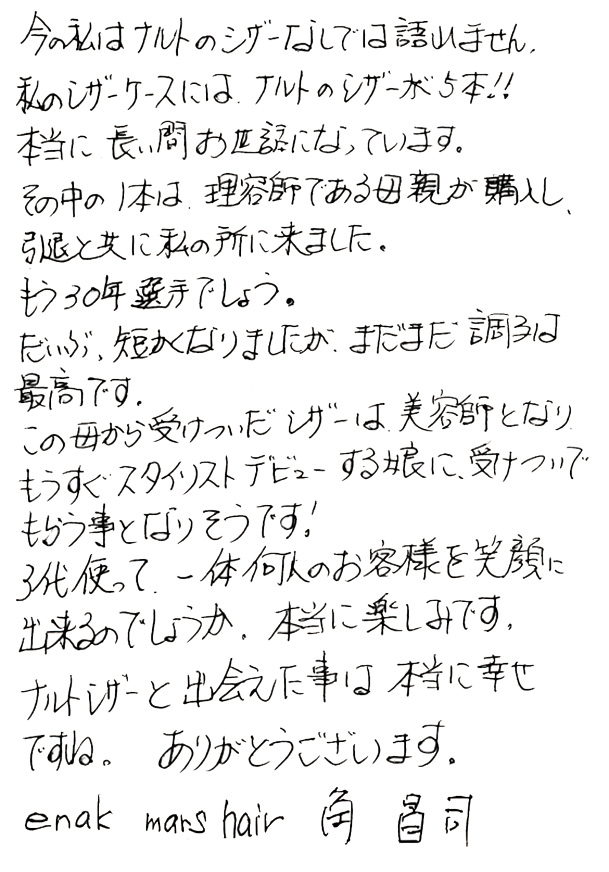 今の私はナルトのシザーなしでは語れません。
私のシザーケースには、ナルトのシザーが5本!!
本当に長い間お世話になっています。
その中の1本は、理容師である母親が購入し、
引退と共に私の所に来ました。
もう30年選手でしょう。
だいぶ、短かくなりましたが、まだまだ調子は
最高です。
この母から受けついだシザーは、美容師となり
もうすぐスタイリストデビューする娘に、受けついで
もらう事となりそうです!
3代使って、一体何人のお客様を笑顔に
出来るのでしょうか。本当に楽しみです。
ナルトシザーと出会えた事は本当に幸せ
ですね。 ありがとうございます。
enak mars hair 角 昌司